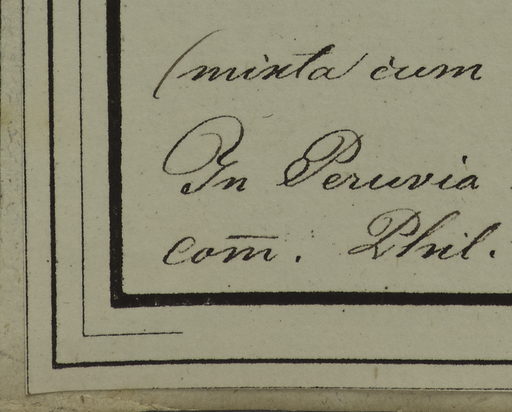 (mixta cum
In Peruvia
com̄. Phil.